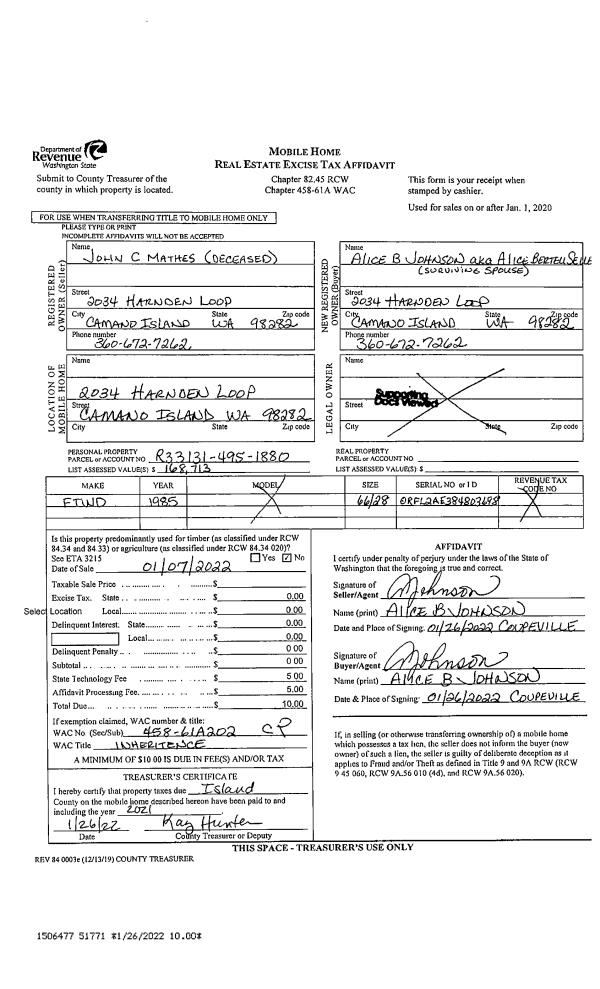 Department of
Revenue
Washington State
Submit to County Treasurer of the
county in which property is located.
MOBILE HOME
REAL ESTATE EXCISE TAX AFFIDAVIT
Chapter 82.45 RCW
Chapter 458-61A WAC
This form is your receipt when
stamped by cashier.
Used for sales on or after Jan. 1, 2020
FOR USE WHEN TRANSFERRING TITLE TO MOBILE HOME ONLY
PLEASE TYPE OR PRINT
INCOMPLETE AFFIDAVITS WILL NOT BE ACCEPTED
REGISTERED OWNER (Seller)
Name
JOHN C MATHES (DECEASED)
Street
2034 HARNDEN LOOP
City State Zip code
CAMANO ISLAND WA 98282
Phone number
360-672-7262
NEW REGISTERED OWNER (Buyer)
Name
ALICE B JOHNSON aka ALICE
(SURVIVING SPOUSE)
Street
2034 HARNDEN LOOP
City State Zip code
CAMANO ISLAND WA 98282
Phone number
360-672-7262
LOCATION OF MOBILE HOME
Name
2034 HARNDEN LOOP
Street
CAMANO ISLAND WA 98282
City State Zip code
LEGAL OWNER
Name
Supporting
Docs Viewed
Street
City State Zip code
PERSONAL PROPERTY
PARCEL or ACCOUNT NO R33131-495-1880
LIST ASSESSED VALUE(S) $ 168,713
REAL PROPERTY
PARCEL or ACCOUNT NO
LIST ASSESSED VALUE(S) $
MAKE YEAR MODEL SIZE SERIAL NO or I D REVENUE TAX CODE NO
1985 66/28
Is this property predominantly used for timber (as classified under RCW
84.34 and 84.33) or agriculture (as classified under RCW 84.34 020)?
See ETA 3215 Yes ☑ No
Date of Sale 01/07/2022
Taxable Sale Price $
Excise Tax. State $ 0.00
Select Location Local $ 0 00
Delinquent Interest. State $ 0.00
Local $ 0.00
Delinquent Penalty $ 0 00
Subtotal $ 0 00
State Technology Fee $ 5 00
Affidavit Processing Fee $ 5.00
Total Due $ 10.00
If exemption claimed, WAC number & title:
WAC No. (Sec/Sub) 458-61A202 CP
WAC Title INHERITENCE
A MINIMUM OF $10 00 IS DUE IN FEE(S) AND/OR TAX
TREASURER'S CERTIFICATE
I hereby certify that property taxes due Island
County on the mobile home described hereon have been paid to and
including the year 2021
1/26/22 Kay Hunter
Date County Treasurer or Deputy
AFFIDAVIT
I certify under penalty of perjury under the laws of the State of
Washington that the foregoing is true and correct.
Signature of
Seller/Agent Johnson
Name (print) ALICE B JOHNSON
Date and Place of Signing: 01/26/2022 COUPEVILLE
Signature of
Buyer/Agent Johnson
Name (print) ALICE B JOHNSON
Date & Place of Signing: 01/26/2022 COUPEVILLE
If, in selling (or otherwise transferring ownership of) a mobile home
which possesses a tax lien, the seller does not inform the buyer (new
owner) of such a lien, the seller is guilty of deliberate deception as it
applies to Fraud and/or Theft as defined in Title 9 and 9A RCW (RCW
9 45 060, RCW 9A.56 010 (4d), and RCW 9A.56 020).
THIS SPACE - TREASURER'S USE ONLY
REV 84 0003e (12/13/19) COUNTY TREASURER
1506477 51771 *1/26/2022 10.00*